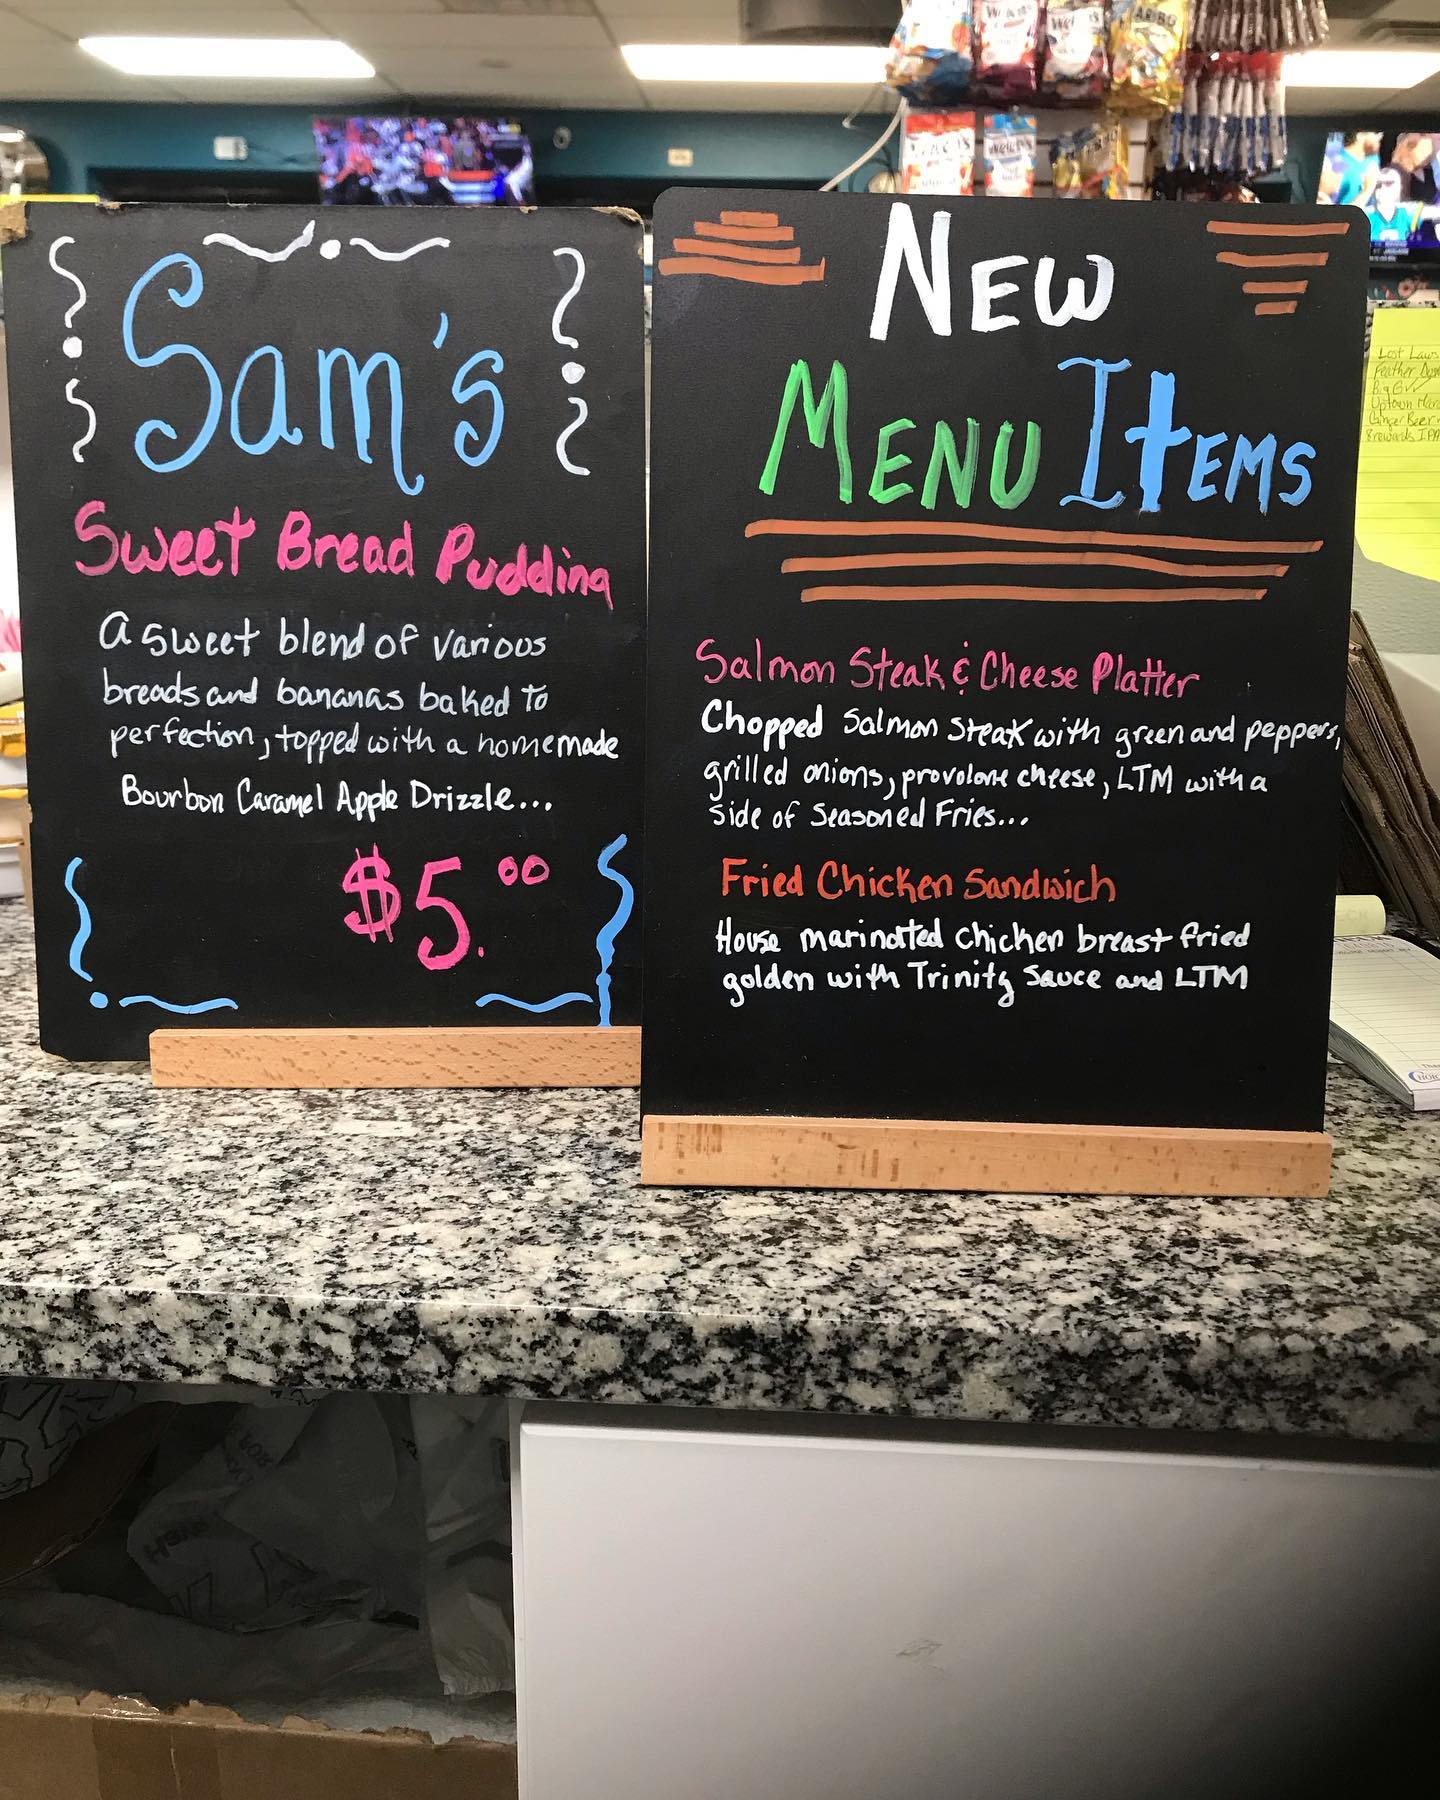 Sam's
Sweet Bread Pudding
A sweet blend of various
breads and bananas baked to
perfection, topped with a homemade
Bourbon Caramel Apple Drizzle...
$5.00
New
Menu Items
Salmon Steak & Cheese Platter
Chopped Salmon Steak with green and peppers,
grilled onions, provolone cheese, LTM with a
side of Seasoned Fries...
Fried Chicken Sandwich
House marinated chicken breast fried
golden with Trinity Sauce and LTM
Welch's
Welch's
HARIBO
Welch's
Lost Laws
Feather
Big G
Uptown
Ginger Beer
IPA